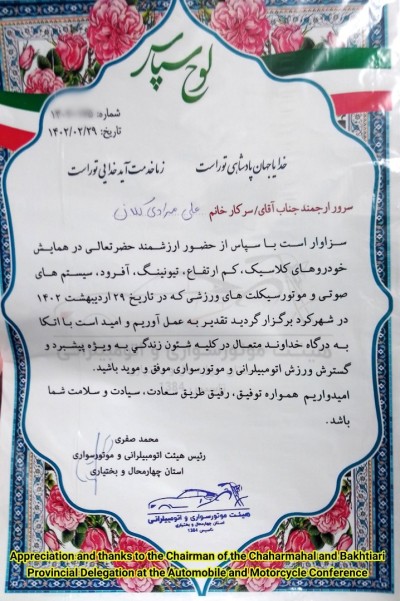 لوح سپاس
شماره:
تاریخ: ۱۴۰۲/۰۲/۲۹
خدایا جهان پادشاهی توراست
زما خدمت آید خدایی توراست
سرور ارجمند جناب آقای/سرکار خانم علی مرادی
سزاوار است با سپاس از حضور ارزشمند حضرتعالی در همایش
خودروهای کلاسیک، کم ارتفاع، تیونینگ، آفرود، سیستم های
صوتی و موتورسیکلت های ورزشی که در تاریخ ۲۹ اردیبهشت ۱۴۰۲
در شهرکرد برگزار گردید تقدیر به عمل آوریم و امید است با اتکا
به درگاه خداوند متعال در کلیه شئون زندگی به ویژه پیشبرد و
گسترش ورزش اتومبیلرانی و موتورسواری موفق و موید باشید.
امیدواریم همواره توفیق، رفیق طریق سعادت، سیادت و سلامت شما
باشد.
محمد صفری
رئیس هیئت اتومبیلرانی و موتورسواری
استان چهارمحال و بختیاری
هیئت موتورسواری و اتومبیلرانی
استان چهارمحال و بختیاری
تاسیس 1384
Appreciation and thanks to the Chairman of the Chaharmahal and Bakhtiari
Provincial Delegation at the Automobile and Motorcycle Conference